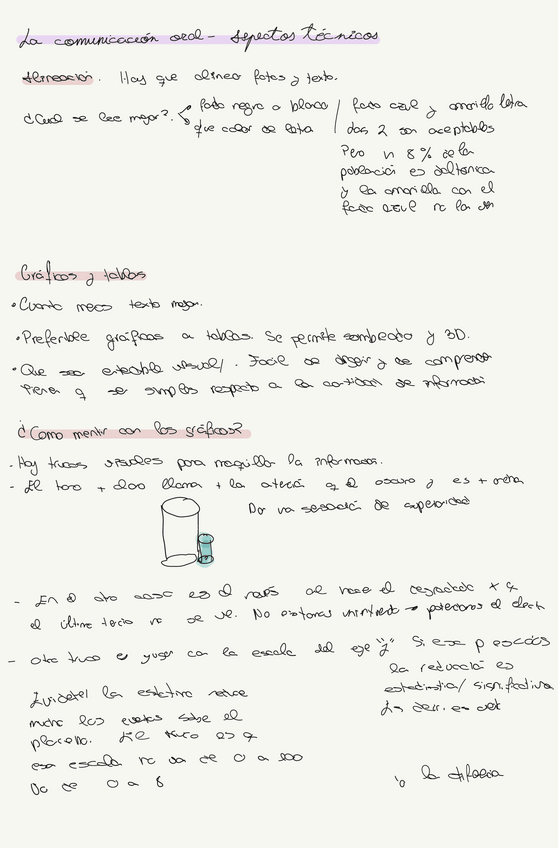 La comunicación oral - Aspectos técnicos
Alineación. Hay que alinear fotos y texto.
¿Cual se lee mejor? fondo negro o blanco / fondo azul y amarillo letra
que color de letra
las 2 son aceptables
Pero un 8% de la
población es daltonica
y la amarilla con el
fondo azul no la ven
Gráficos y tablas
• Cuanto menos texto mejor.
• Preferible gráficas a tablas. Se permite sombreado y 3D.
• Que sea visual/. Facil de digerir y de comprender
Tienen q ser simples respecto a la cantidad de información
¿Como mentir con los gráficos?
- Hay trucos visuales para maquillar la información.
- El tono + claro llama + la atención q el oscuro y es + ancha
Da sensación de superioridad
- En el otro caso es el al x q
el último tercio no se ve. No el efecto
- Otro truco es jugar con la escala del eje "y"
Si ese p
la reducción es
estadística/ significativa
la estatina reduce
mucho los eventos sobre el
placebo. El truco es q
esa escala no va de 0 a 100
Va de 0 a 8
la diferencia